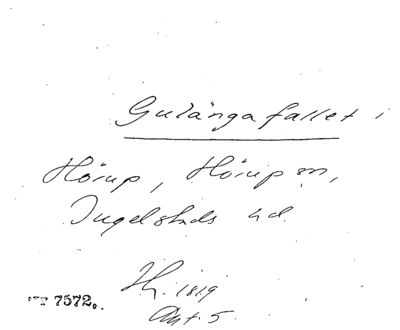 Gulängafallet i
Hörup, Hörup sn,
Ingelstads hd.
Hy. 1819
Akt. 5.
7572.